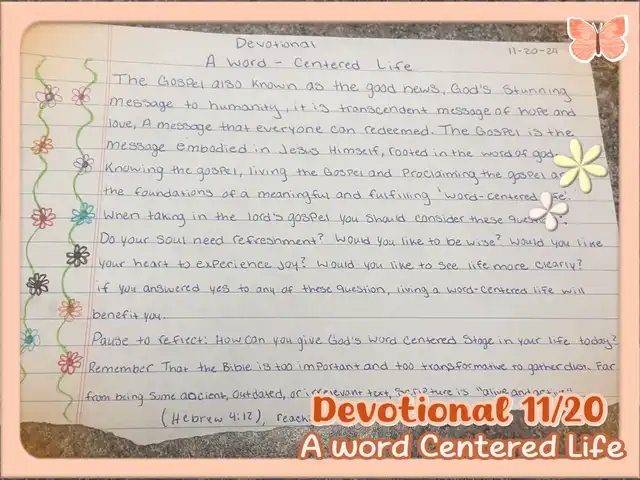 Devotional
11-20-24
A Word - Centered Life
The Gospel also known as the good news, God's stunning
message to humanity, it is transcendent message of hope and
love, A message that everyone can redeemed. The Gospel is the
message embodied in Jesus Himself, rooted in the word of god.
Knowing the gospel, living the Gospel and Proclaiming the gospel
the foundations of a meaningful and fulfilling "word-centered life".
When taking in the lord's gospel you should consider these
Do your soul need refreshment? Would you like to be wise? Would you like
your heart to experience joy? Would you like to see life more clearly?
if you answered yes to any of these question, living a word-centered life will
benefit you.
Pause to reflect: How can you give God's word centered stage in your life today?
Remember That the Bible is too important and too transformative to gather dust. Far
from being some ancient, outdated, or irrelevant text, Scripture is "alive and active"
(Hebrew 4:12),
Devotional 11/20
A word Centered Life